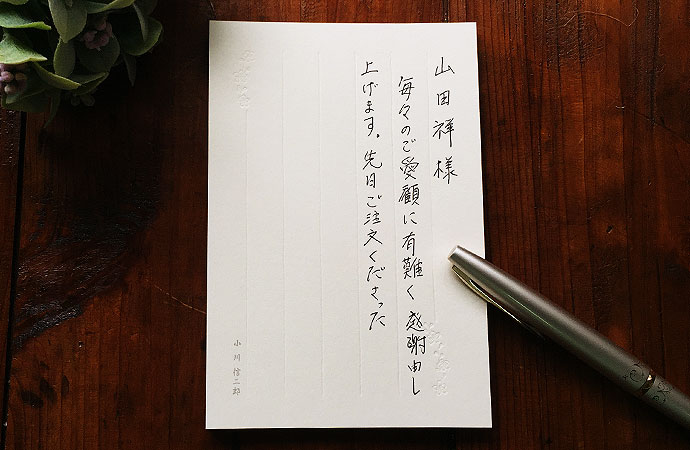 山田祥様
毎々のご愛顧に有難く感謝申し
上げます。先日ご注文くださった
小川信二郎